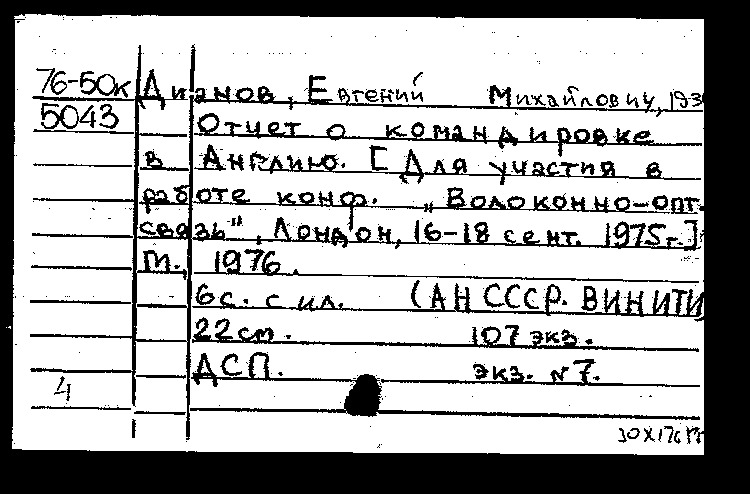 76-50к Дианов, Евгений Михайлович,
5043 Отчет о командировке
в Англию. [Для участия в
работе конф. „Волоконно-опт.
связь", Лондон, 16-18 сент. 1975г.]
М., 1976.
6с. с ил. (АН СССР. ВИНИТИ
22см. 107 экз.
ДСП. экз. №7.
4